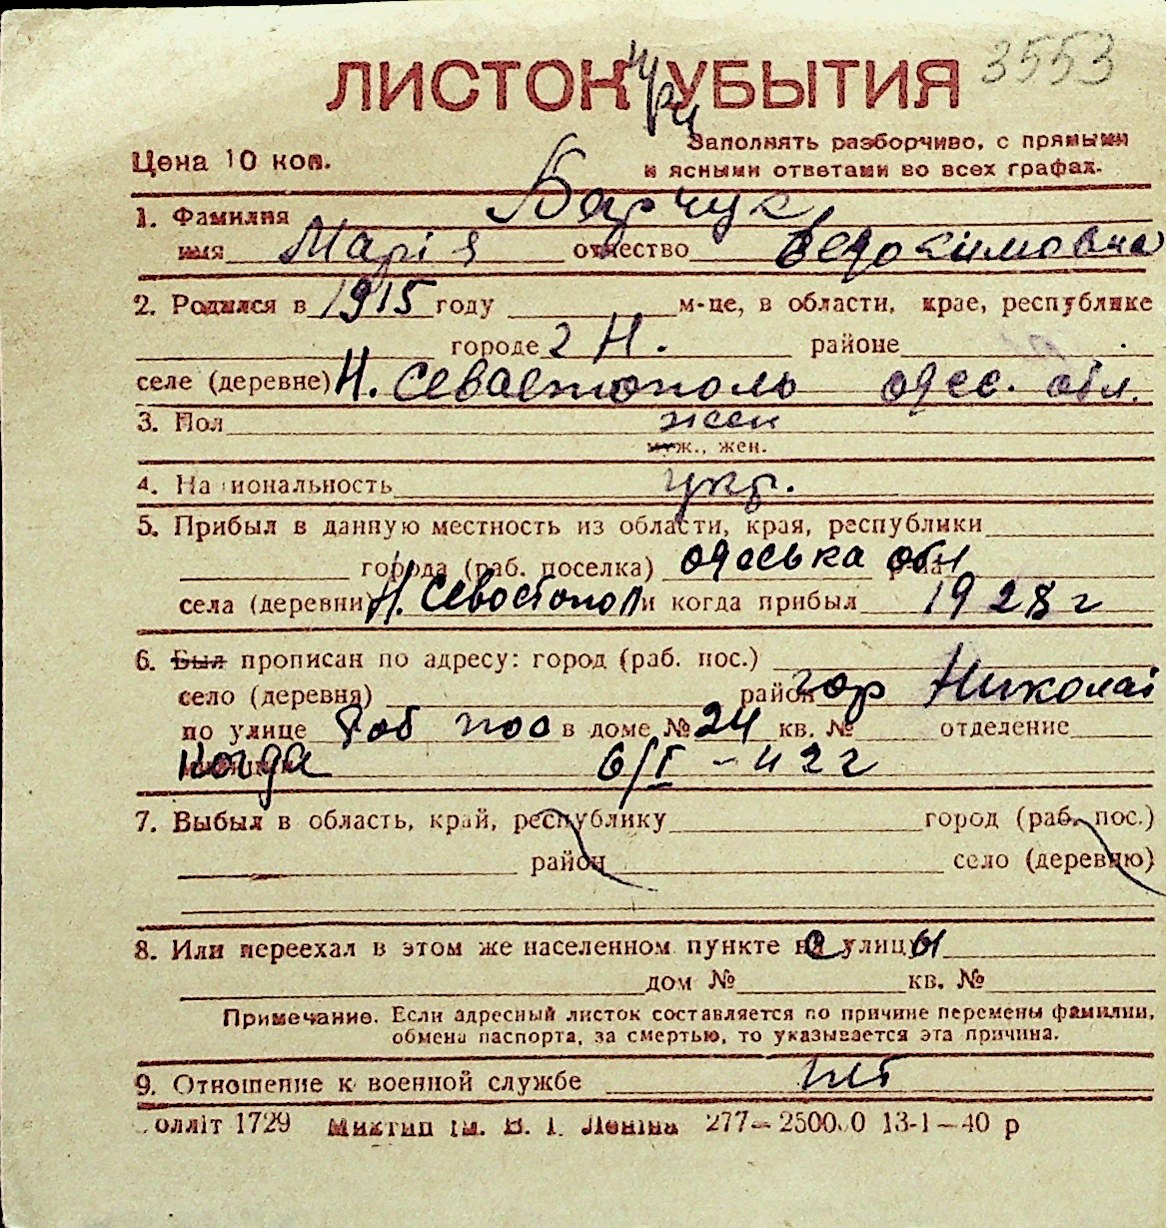 ЛИСТОК УБЫТИЯ 3553
Цена 10 коп.
Заполнять разборчиво, с прямыми
и ясными ответами во всех графах.
1. Фамилия Барчук
имя Марія отчество Євдокимовна
2. Родился в 1915 году м-це, в области, крае, республике
городе г Н. районе
селе (деревне) Н. Севастополь одес. обл.
3. Пол жен
муж., жен.
4. Национальность укр.
5. Прибыл в данную местность из области, края, республики
города (раб. поселка) одеська обл
села (деревни) Н. Севостопол и когда прибыл 1928 г
6. Был прописан по адресу: город (раб. пос.)
село (деревня) район гор Николаї
по улице Роб пос в доме № 24 кв. № отделение
Когда 6/I – 42 г
7. Выбыл в область, край, республику город (раб. пос.)
район село (деревню)
8. Или переехал в этом же населенном пункте с улицы
дом № кв. №
Примечание. Если адресный листок составляется по причине перемены фамилии,
обмена паспорта, за смертью, то указывается эта причина.
9. Отношение к военной службе нет
олліт 1729 Миктип ім. В. І. Леніна 277—250000 13-1—40 р